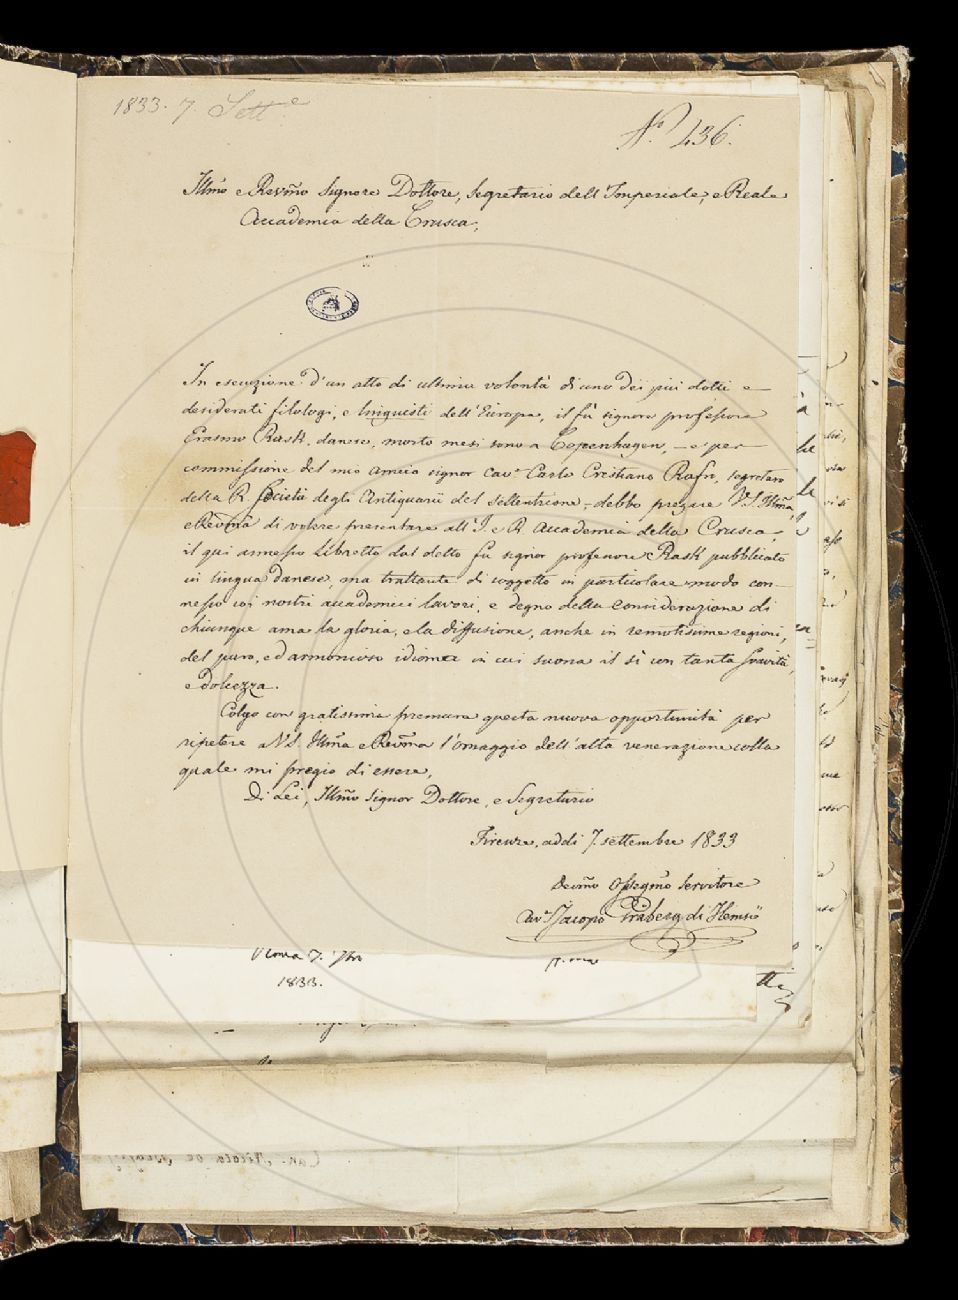 1833. 7. Sett.e
N.o 436.
Illmo e Revmo Signore Dottore, Segretario dell'Imperiale, e Reale
Accademia della Crusca,
In esecuzione d'un atto di ultima volontà di uno dei piú dotti e
desiderati filologi, e linguisti dell'Europa, il fú signore professore
Erasmo Rask, danese, morto mesi sono a Copenhagen, — e per
commissione del mio amico signor cav.e Carlo Cristiano Rafn, segretaro
della R. Società degli Antiquarii del settentrione, debbo pregare V. S. Illma,
e Revma di volere presentare all'I. e R. Accademia della Crusca
il qui annesso Libretto dal detto fú signor professore Rask pubblicato
in lingua danese, ma trattante di soggetto in particolare modo con-
nesso coi nostri accademici lavori, e degno della considerazione di
chiunque ama la gloria, e la diffusione, anche in remotissime regioni,
del puro, ed armonioso idioma in cui suona il sì con tanta soavità,
e dolcezza.
Colgo con gratissima premura questa nuova opportunità per
ripetere a V. S. Illma e Revma l'omaggio dell'alta venerazione colla
quale mi pregio di essere,
Di Lei, Illmo Signor Dottore, e Segretario
Firenze, addì 7. settembre 1833
Devmo Ossegmo Servitore
Cav.e Jacopo Gråberg di Hemsö
7. 7bre
1833.